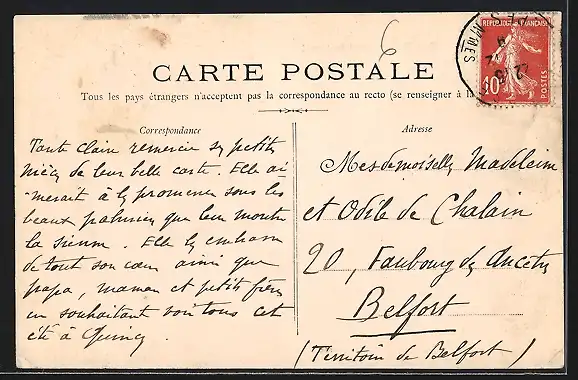 6
CARTE POSTALE
Tous les pays étrangers n'acceptent pas la correspondance au recto (se renseigner à la
Correspondance
Adresse
REPUBLIQUE FRANÇAISE
10
POSTES
Tante Claire remercie ses petites
nièces de leur belle carte. Elle ai
merait à les promener sous les
beaux palmiers que leur montre
la sienne. Elle les embrasse
de tout son cœur ainsi que
papa, maman et petit frère
en souhaitant voir tous cet
été à Quincy
Mesdemoiselles Madeleine
et Odile de Chalain
20, Faubourg des Ancêtres
Belfort
(Territoire de Belfort)